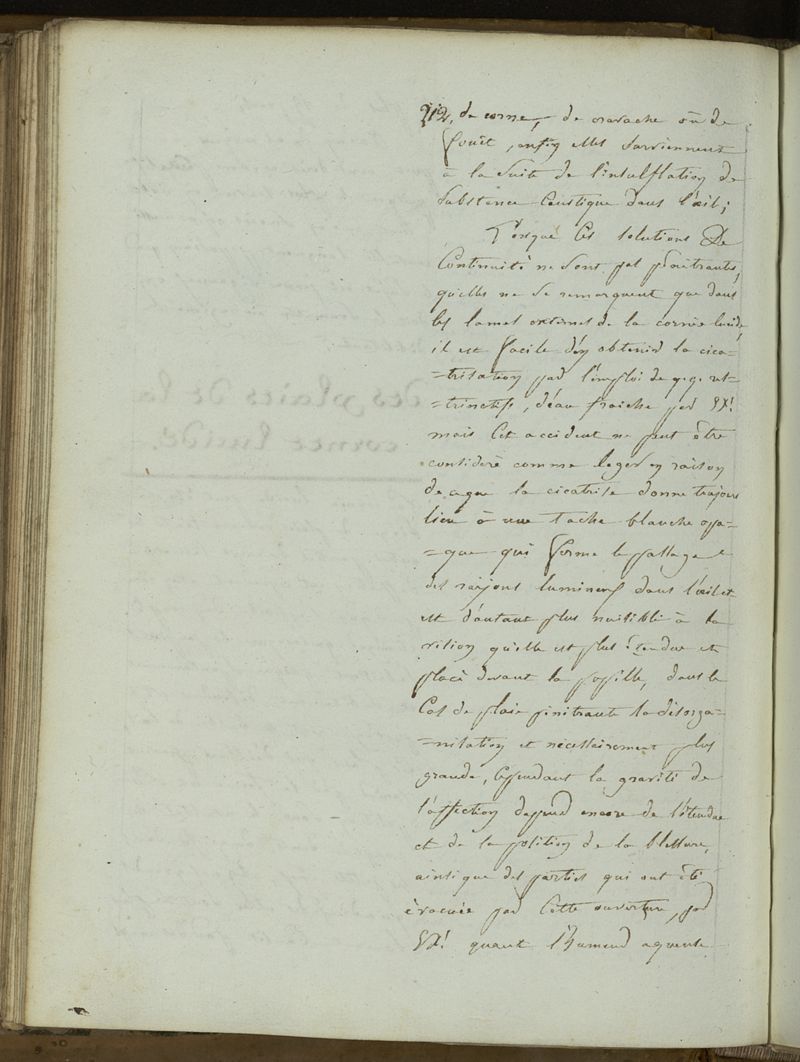 212. de corne, de cravache où de
fouët, enfin elles surviennent
a la suite de l'insufflation de
substance Caustique dans l'œil;
Lorsque Ces solutions De
Continuité ne sont pas pénétrantes,
qu'elles ne se remarquent que dans
les lames externes de la cornée lucide,
il est facile d'en obtenir la cica-
-trisation par l'emploi de q.q. as-
-trinctifs, d'eau fraiche par EX!
mais Cet accident ne peut être
consideré comme leger en raison
de ce que la cicatrise donne toujours
lieu à une tache blanche opa-
-que qui ferme le passage
des raijons lumineux dans l'œil et
est d'autant plus nuisible à la
vision qu'elle est plus étendue et
placé devant la pupille, dans le
Cas de plaie pénitrante la désorga-
-nisation et nécessairement plus
grande, Cependant la gravité de
l'affection depend encore de l'étendue
et de la position de la blessure,
ainsi que des parties qui ont été
évacuée par Cette ouverture, par
EX! quant l'Humeur aqueuse